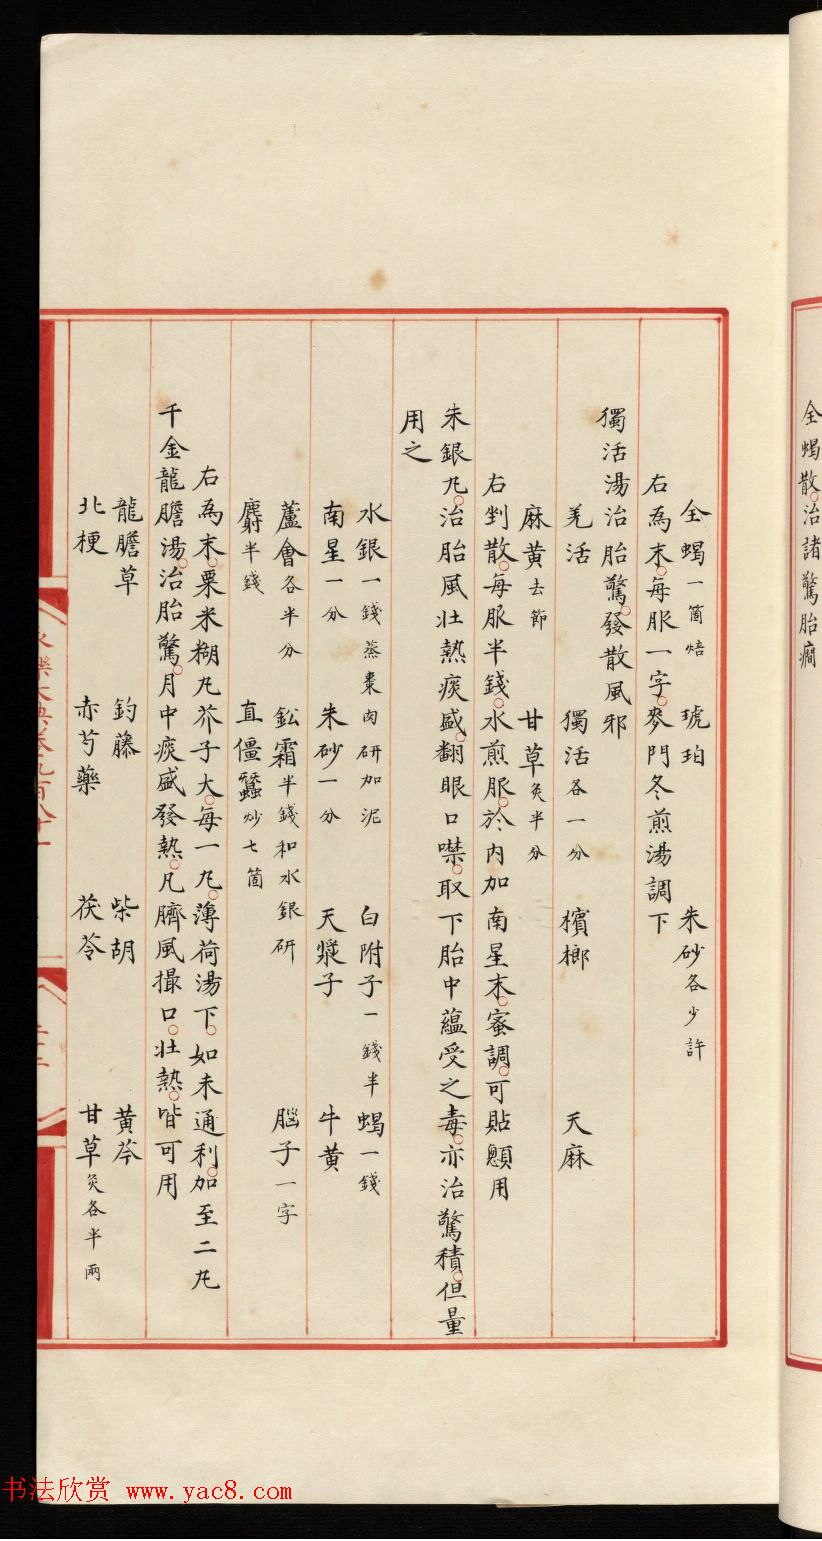 全蝎散治諸驚胎癎
全蝎一箇焙 琥珀 朱砂各少許
右為末每服一字麥門冬煎湯調下
獨活湯治胎驚發散風邪
羌活 獨活各一分 檳榔 天麻
麻黄去節 甘草炙半分
右剉散每服半錢水煎服於内加南星末蜜調可貼顖用
朱銀丸治胎風壯熱痰盛翻眼口噤取下胎中蘊受之毒亦治驚積但量
用之
水銀一錢蒸棗肉研加泥 白附子一錢半 蝎一錢
南星一分 朱砂一分 天漿子 牛黄
蘆會各半分 鈆霜半錢和水銀研 腦子一字
麝半錢 直僵蠶炒七箇
右為末粟米糊丸芥子大每一丸薄荷湯下如未通利加至二丸
千金龍膽湯治胎驚月中痰盛發熱凡臍風撮口壯熱皆可用
龍膽草 鈎藤 柴胡 黄芩
北梗 赤芍藥 茯苓 甘草炙各半兩
永樂大典卷九百八十一
书法欣赏 www.yac8.com